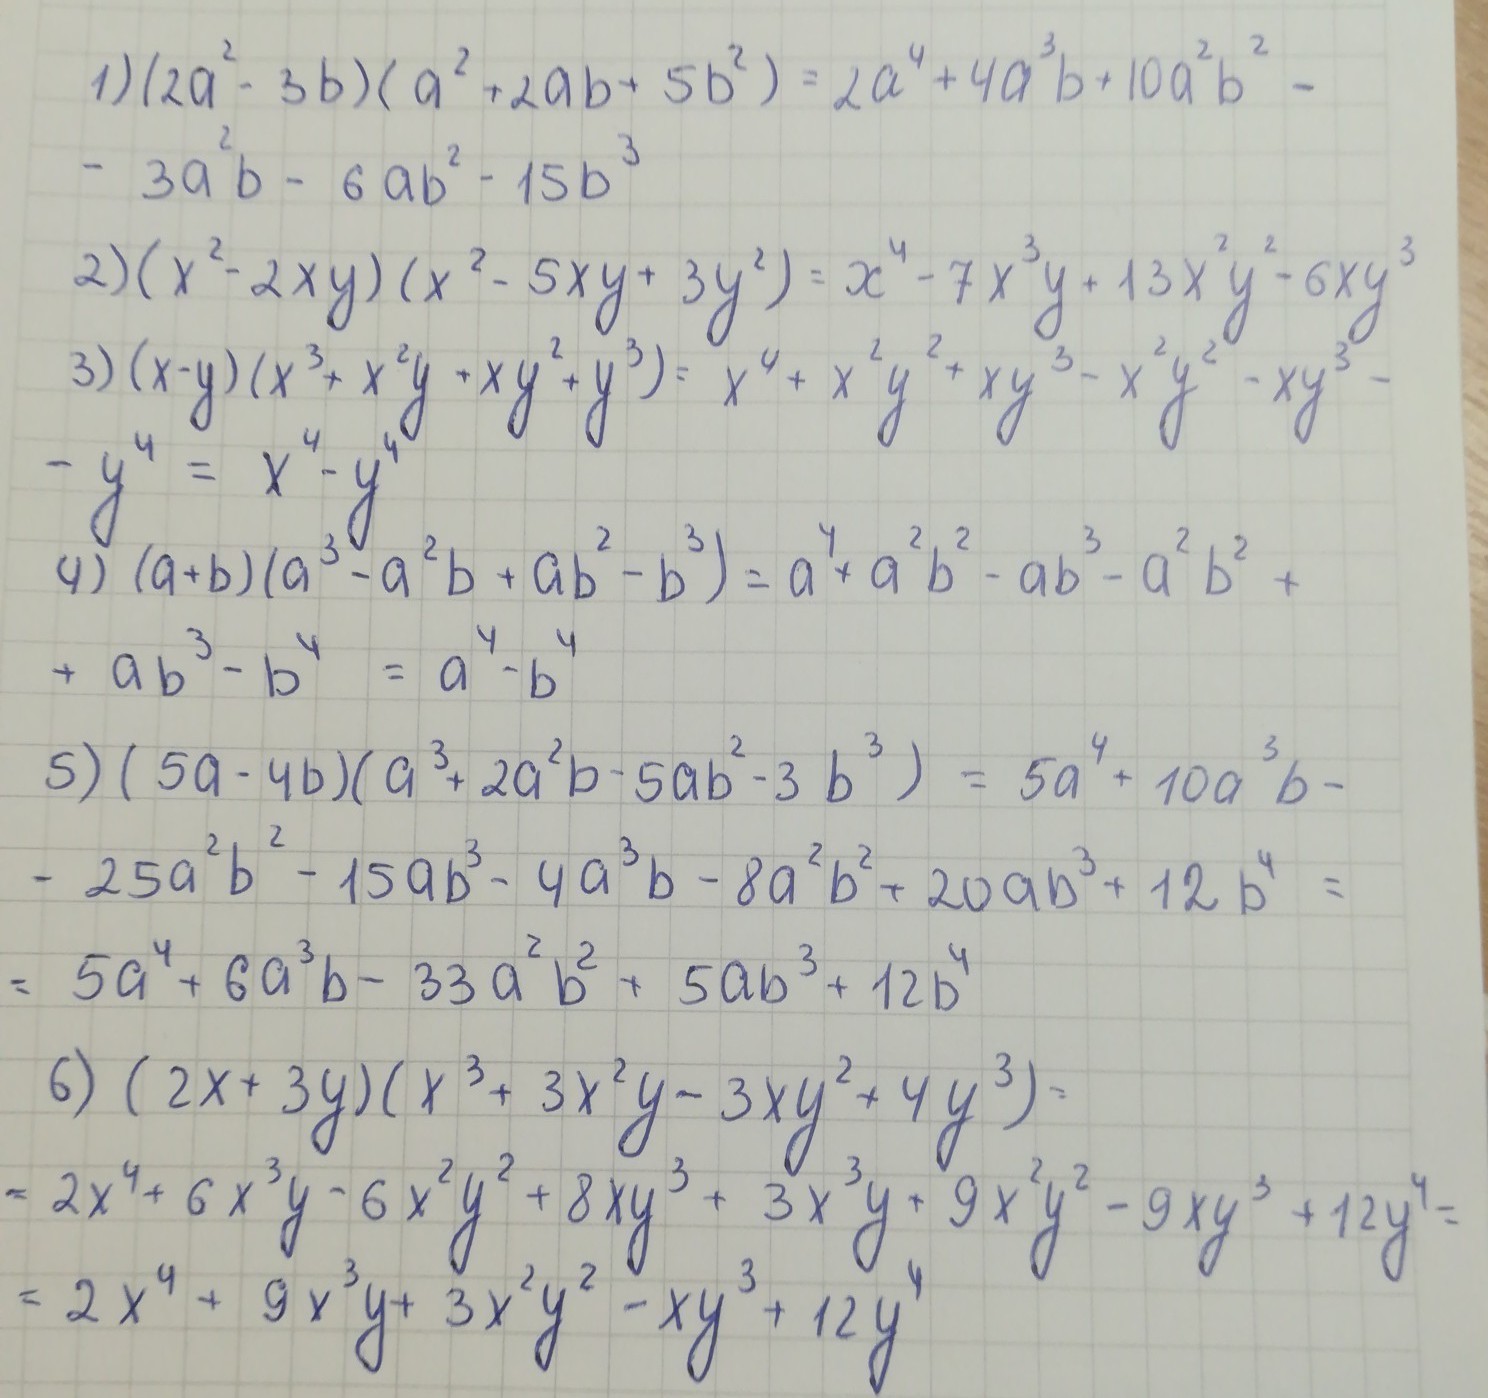 1) (2a² - 3b)(a² + 2ab + 5b²) = 2a⁴ + 4a³b + 10a²b² -
- 3a²b - 6ab² - 15b³
2) (x² - 2xy)(x² - 5xy + 3y²) = x⁴ - 7x³y + 13x²y² - 6xy³
3) (x-y)(x³ + x²y + xy² + y³) = x⁴ + x²y² + xy³ - x²y² - xy³ -
- y⁴ = x⁴ - y⁴
4) (a+b)(a³ - a²b + ab² - b³) = a⁴ + a²b² - ab³ - a²b² +
+ ab³ - b⁴ = a⁴ - b⁴
5) (5a - 4b)(a³ + 2a²b - 5ab² - 3b³) = 5a⁴ + 10a³b -
- 25a²b² - 15ab³ - 4a³b - 8a²b² + 20ab³ + 12b⁴ =
= 5a⁴ + 6a³b - 33a²b² + 5ab³ + 12b⁴
6) (2x + 3y)(x³ + 3x²y - 3xy² + 4y³) =
= 2x⁴ + 6x³y - 6x²y² + 8xy³ + 3x³y + 9x²y² - 9xy³ + 12y⁴ =
= 2x⁴ + 9x³y + 3x²y² - xy³ + 12y⁴